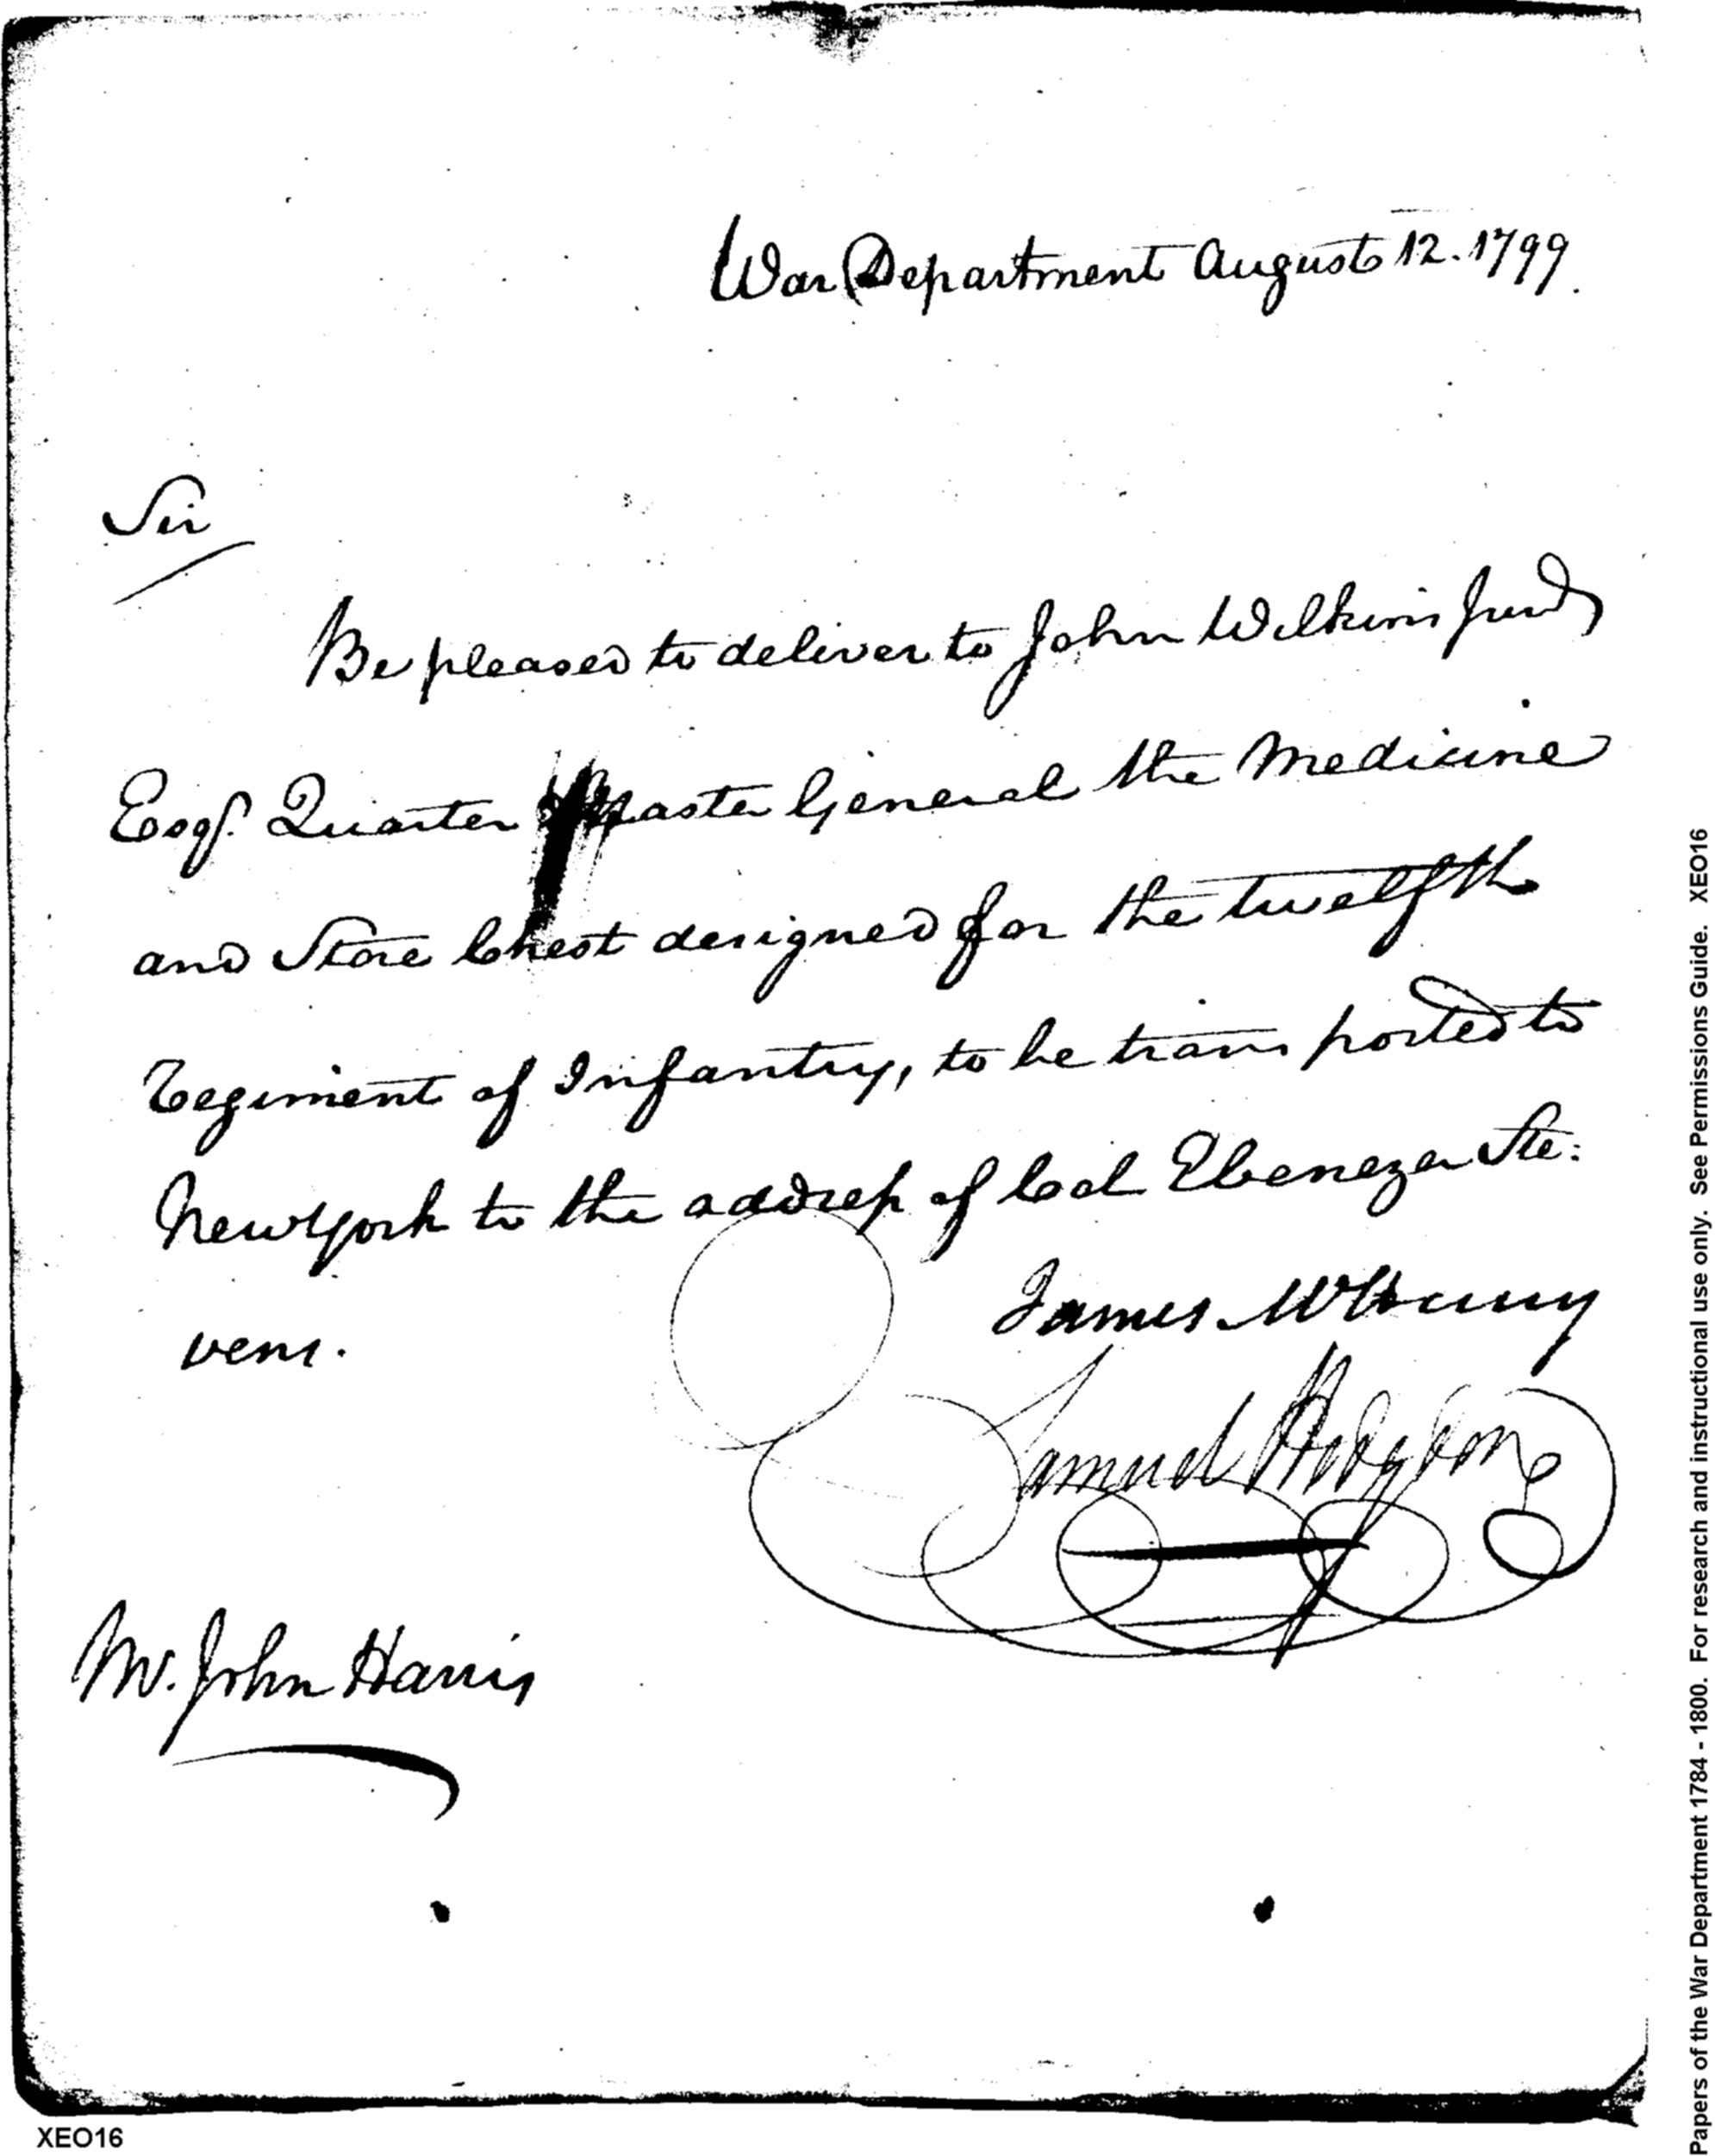 War Department August 12. 1799.
Sir
Be pleased to deliver to John Wilkins Jund
Esqr. Quarter Master General the Medicine
and Store Chest designed for the twelfth
Regiment of Infantry, to be transported to
New York to the address of Col Ebenezer Ste:
vens.
James McHenry
Samuel Hodgdon
Mr. John Harris
XEO16
Papers of the War Department 1784 - 1800. For research and instructional use only. See Permissions Guide. XEO16